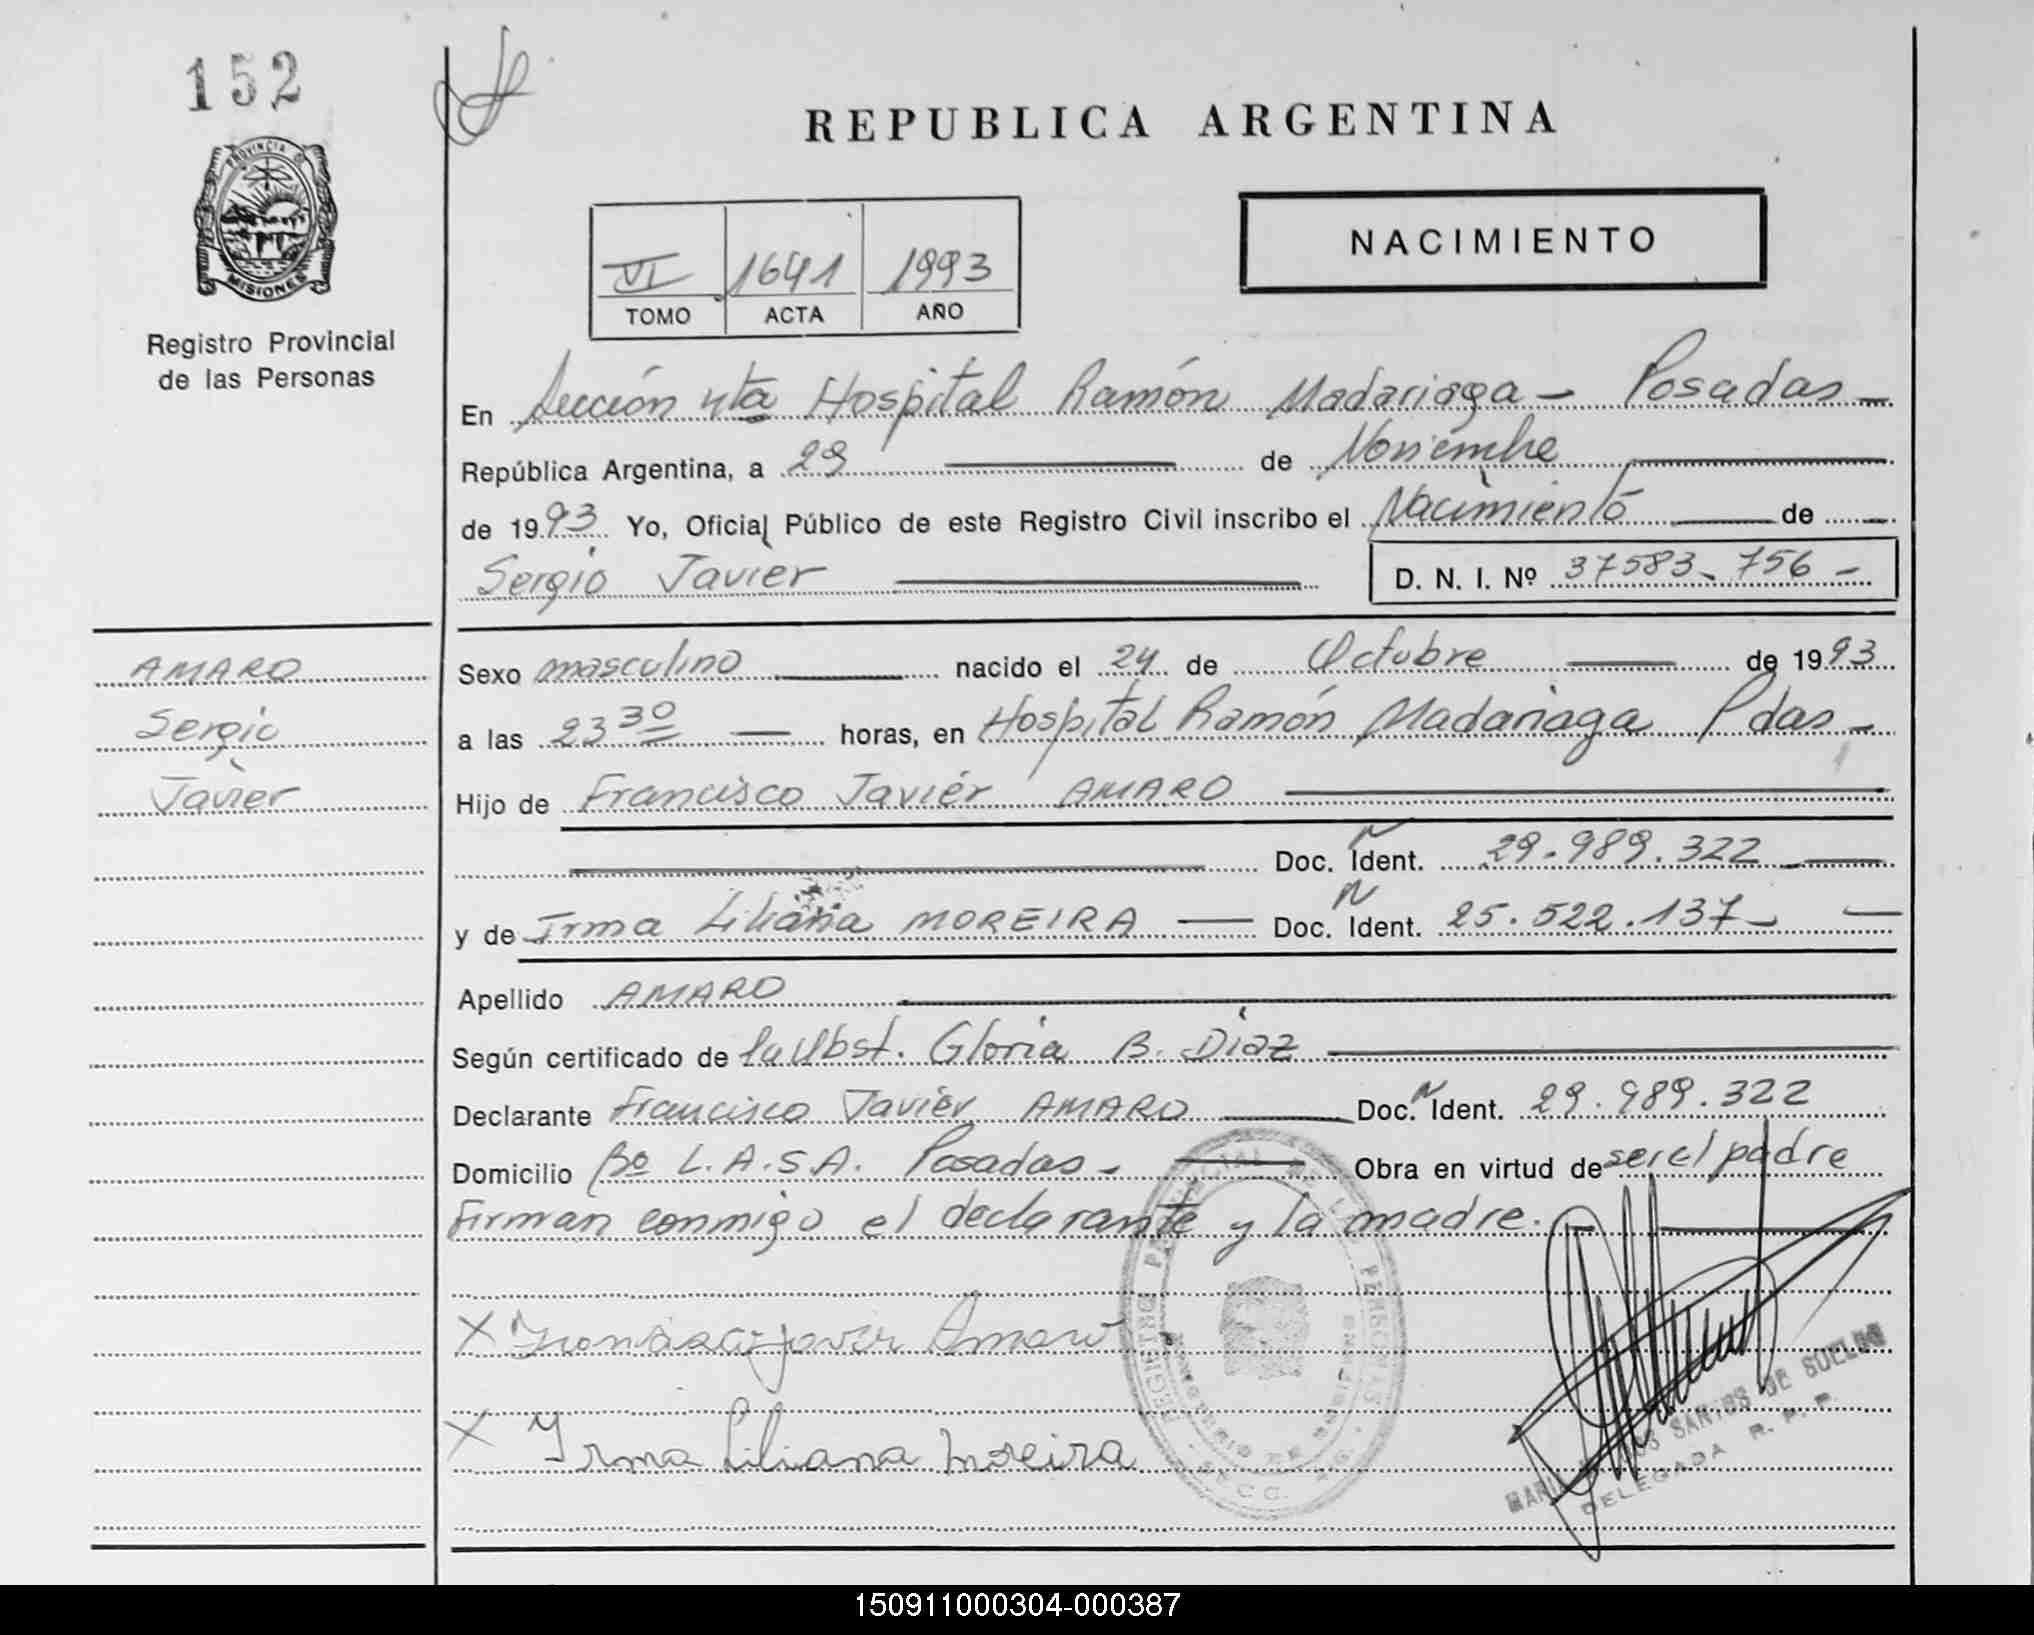 152
PROVINCIA D
MISIONES
Registro Provincial
de las Personas
REPUBLICA ARGENTINA
NACIMIENTO
VI 1641 1993
TOMO ACTA AÑO
En Sección 4ta Hospital Ramón Madariaga - Posadas -
República Argentina, a 29 de Noviembre
de 1993 Yo, Oficial Público de este Registro Civil inscribo el Nacimiento de
Sergio Javier D. N. I. Nº 37583-756 -
AMARO
Sergio
Javier
Sexo masculino nacido el 24 de Octubre de 1993
a las 23 30 horas, en Hospital Ramón Madariaga Pdas -
Hijo de Francisco Javier AMARO
Doc. N Ident. 29.989.322
y de Irma Liliana MOREIRA Doc. N Ident. 25.522.137 -
Apellido AMARO
Según certificado de la Obst. Gloria B. Diaz
Declarante Francisco Javier AMARO Doc. N Ident. 29.989.322
Domicilio Bº L.A.S.A. Posadas - Obra en virtud de ser el padre
Firman conmigo el declarante y la madre. -
X Javier Amaro
X Irma Liliana Moreira
REGISTRO PROVINCIAL DE LAS PERSONAS
SANTOS DE
DELEGADA R. P. P.
150911000304-000387